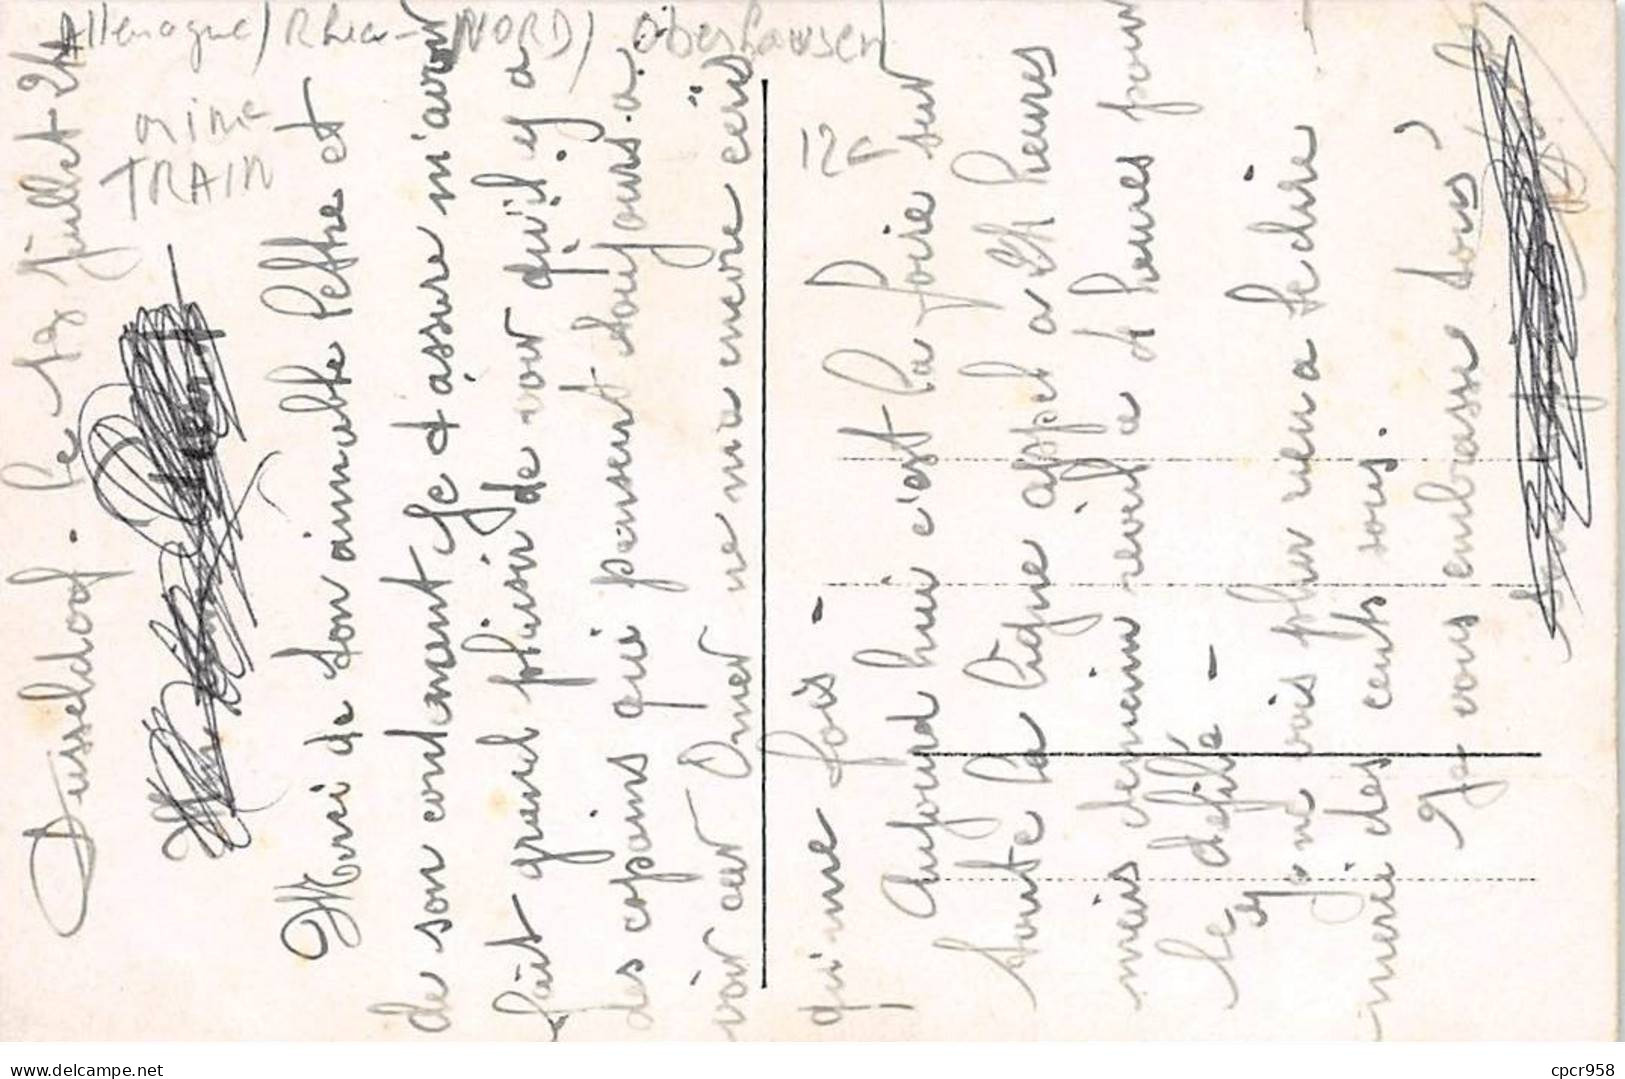 Allemagne / Rhein - NORD / Oberhausen
mine
TRAIN
12F
Dusseldorf. le 13 juillet 24
Merci de ton aimable lettre et
de son contenant. Je t'assure m'avoir
fait grand plaisir de voir qu'il y a
des copains qui pensent toujours a
voir car Omer ne m'a encore écris
qu'une fois -
Aujourd hui c'est la foire sur
toute la ligne appel a 24 heures
mais demain réveil a 4 heures pour
le défilé -
Je ne vois plus rien a te dire
merci des cents sous.
Je vous embrasse tous
www.delcampe.net
cpcr958